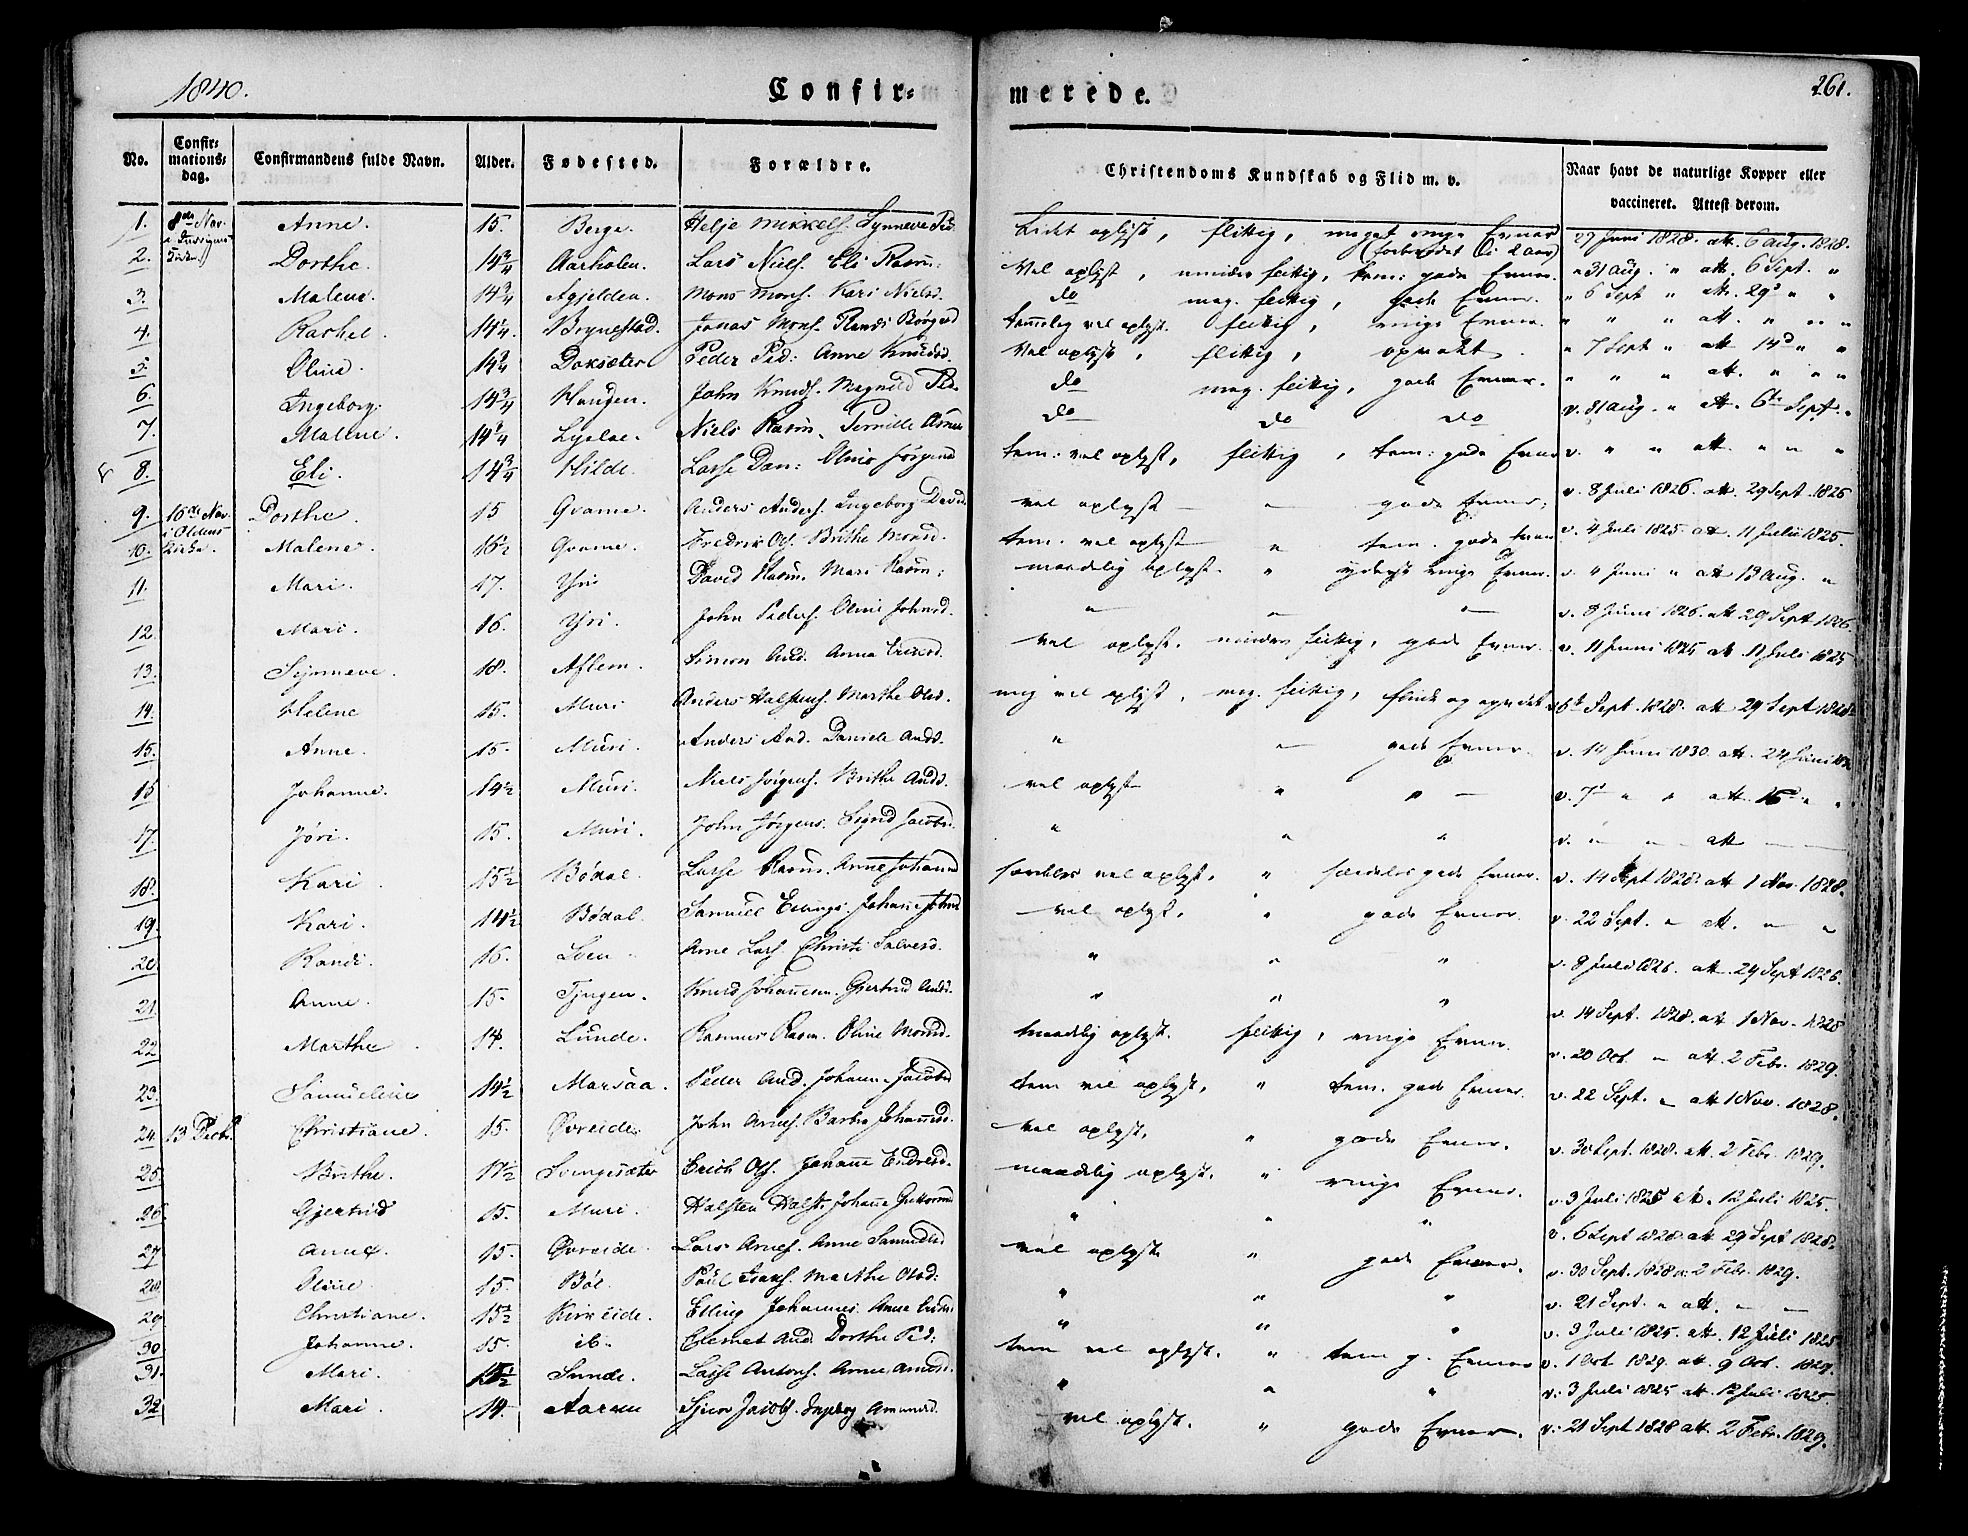 1840.
Confir=
merede.
261.
No. Confir=mations=dag. Confirmandens fulde Navn. Alder. Fødested. Forældre. Christendoms Kundskab og Flid m. v. Naar havt de naturlige Kopper eller vaccineret. Attest derom.
1. 8de Nov. Anne. 15. Berge. Helje Mikkels. Synneve Ped. Lidet oplyst, flittig, meget ringe Evner 27 Juni 1828. att. 6 aug. 1828.
2. Dorthe. 14 3/4 Aarholen. Lars Niels. Eli Rasm: Vel oplyst, mindre flittig, tem: gode Evner. " 31 aug. " att. 6 Sept. "
3. Malene. 14 3/4 Agjelden. Mons Mons. Kari Nielsd. do meg. flittig, gode Evner. " 6 Sept " att. 29 " "
4. Rachel. 14 1/4. Brynestad. Jonas Mons. Randi Børgesd temmelig vel oplyst. flittig, ringe Evner. " " " att. " " "
5. Oline. 14 3/4 Doksæter Peder Ped: Anne Knudsd. Vel oplyst, flittig, opvakt. " 7 Sept " att 14d " "
6. Ingeborg. 14 3/4 Haugen. John Knuds. Magnild Ped. do meg. flittig, gode Evner. " " " att. " " "
7. Malene. 14 3/4 Lysloe. Niels Rasm. Pernille Asm do do do v. 31 aug. " att. 6te Sept. "
8. Eli. 14 3/4 Hilde. Lasse Dan: Oline Jørgensd tem: vel oplyst, flittig, tem: gode Evner v. " " att. " " "
9. 16de Nov. i Oldens Kirke. Dorthe. 15 Gvame. Anders Anders. Ingeborg Davids vel oplyst — " gode Evner, v. 8 Juli 1826. att. 29 Sept. 1826
10. Malene. 16 1/2 Gvame. Fredrik Ol. Brithe Monsd. tem. vel oplyst " tem. gode Evner v. 4 Juli 1825. att. 11 Julii 1825.
11. Mari. 17. Yri David Rasm. Mari Rasm: maadelig oplyst. " yderst ringe Evner. v. 4 Juni " att 13 aug. "
12. Mari. 16. Yri. John Peders. Oline Johnsd. " " " v. 8 Juni 1826. att. 29 Sept 1826.
13. Synneve. 18. Aflem. Simon And. Anna Ericsd. vel oplyst. mindre flittig, gode Evner. v. 11 Juni 1825 att 11 Juli 1825
14. Helene 15. Muri Anders Halstens. Marthe Olsd. meg vel oplyst, meg. flittig, 6te Sept. 1828. att 29 Sept 1828.
15. Anne. 15. Muri. Anders And. Daniele Andsd. " — gode Evner. v. 14 Juni 1830. att. 24 Juni
16 Johanne. 14 1/2 Muri. Niels Jørgens. Brithe Andsd. vel oplyst " " — v. 7d " " att. 16d " "
17. Jøri. 15. Muri. John Jørgens. Sigrid Jacobsd. " " " v. " " att — —
18. Kari. 15 1/2 Bødal. Lasse Rasm. Anne Johannsd særdeles vel oplyst. " særdeles gode Evner. v. 14 Sept 1828. att 1 Nov. 1828.
19. Kari. 14 1/2 Bødal. Samuel Ellings. Johanne Johns vel oplyst. " gode Evner. v. 22 Sept. " att. " "
20. Randi. 16. Loen. Arne Lars. Christi Salvesd. " " " v. 8 Juli 1826. att. 29 Sept 1826.
21. Anne. 15. Tjugen. Knud Johannesen. Gjertrud Andsd. " " " v. 14 Sept. 1828. att 1 Nov. 1828
22 Marthe 14. Lunde. Rasmus Rasm. Oline Monsd. maadelig oplyst. flittig, ringe Evner. v. 20 Oct — att. 2 Febr. 1829.
23. Samueline 14 1/2 Marsaa. Peder And. Johanne Jacobsd tem vel oplyst, " tem. gode Evner. v. 22 Sept. — att 1 Nov. 1828.
24. 13 Decbr. Christiane. 15. Øvreide. John Arnes. Barbra Johannesd. vel oplyst, " gode Evner. v. 30 Sept. 1828. att. 2 Febr. 1829.
25. Brithe. 17 1/2 Svingesæter Erich Ols. Johanne Endresd. maadelig oplyst. " ringe Evner. v. 3 Juli 1825 att. 12 Juli 1825.
26. Gjertrud 15. Muri. Halsten Halst. Johanne Guttormsd " " " v. 6 Sept 1828. att 29 Sept 1828.
27. Anne. 15. Øvreide. Lars Arnes. Anne Samuelsd vel oplyst. " gode Evner. v. 30 Sept. 1828 a: 2 Febr. 1829.
28. Oline. 15. Bøe. Paul Isaks. Marthe Olsd: " " " v. 21 Sept. " att. — —
29 Christiane. 15 1/2 Kirkeide. Elling Johannes. Anne " " " v. 3 Juli 1825. att. 12 Juli 1825
30 Johanne. 15. ib. Clemet And. Dorthe Ped: tem vel oplyst. " tem g. Evner v. 1 Oct 1829. att. 9 Oct. 1829.
31. Mari. 15 1/2 Sunde. Lasse Antons. Anne Andsd. " " " v. 3 Juli 1825 att. 12 Juli 1825.
32 Mari. 14. Aareen Sjur Jacobs. Ingeborg Amundsd. vel oplyst. " gode Evner. v. 21 Sept 1828 att. 2 Febr. 1829.